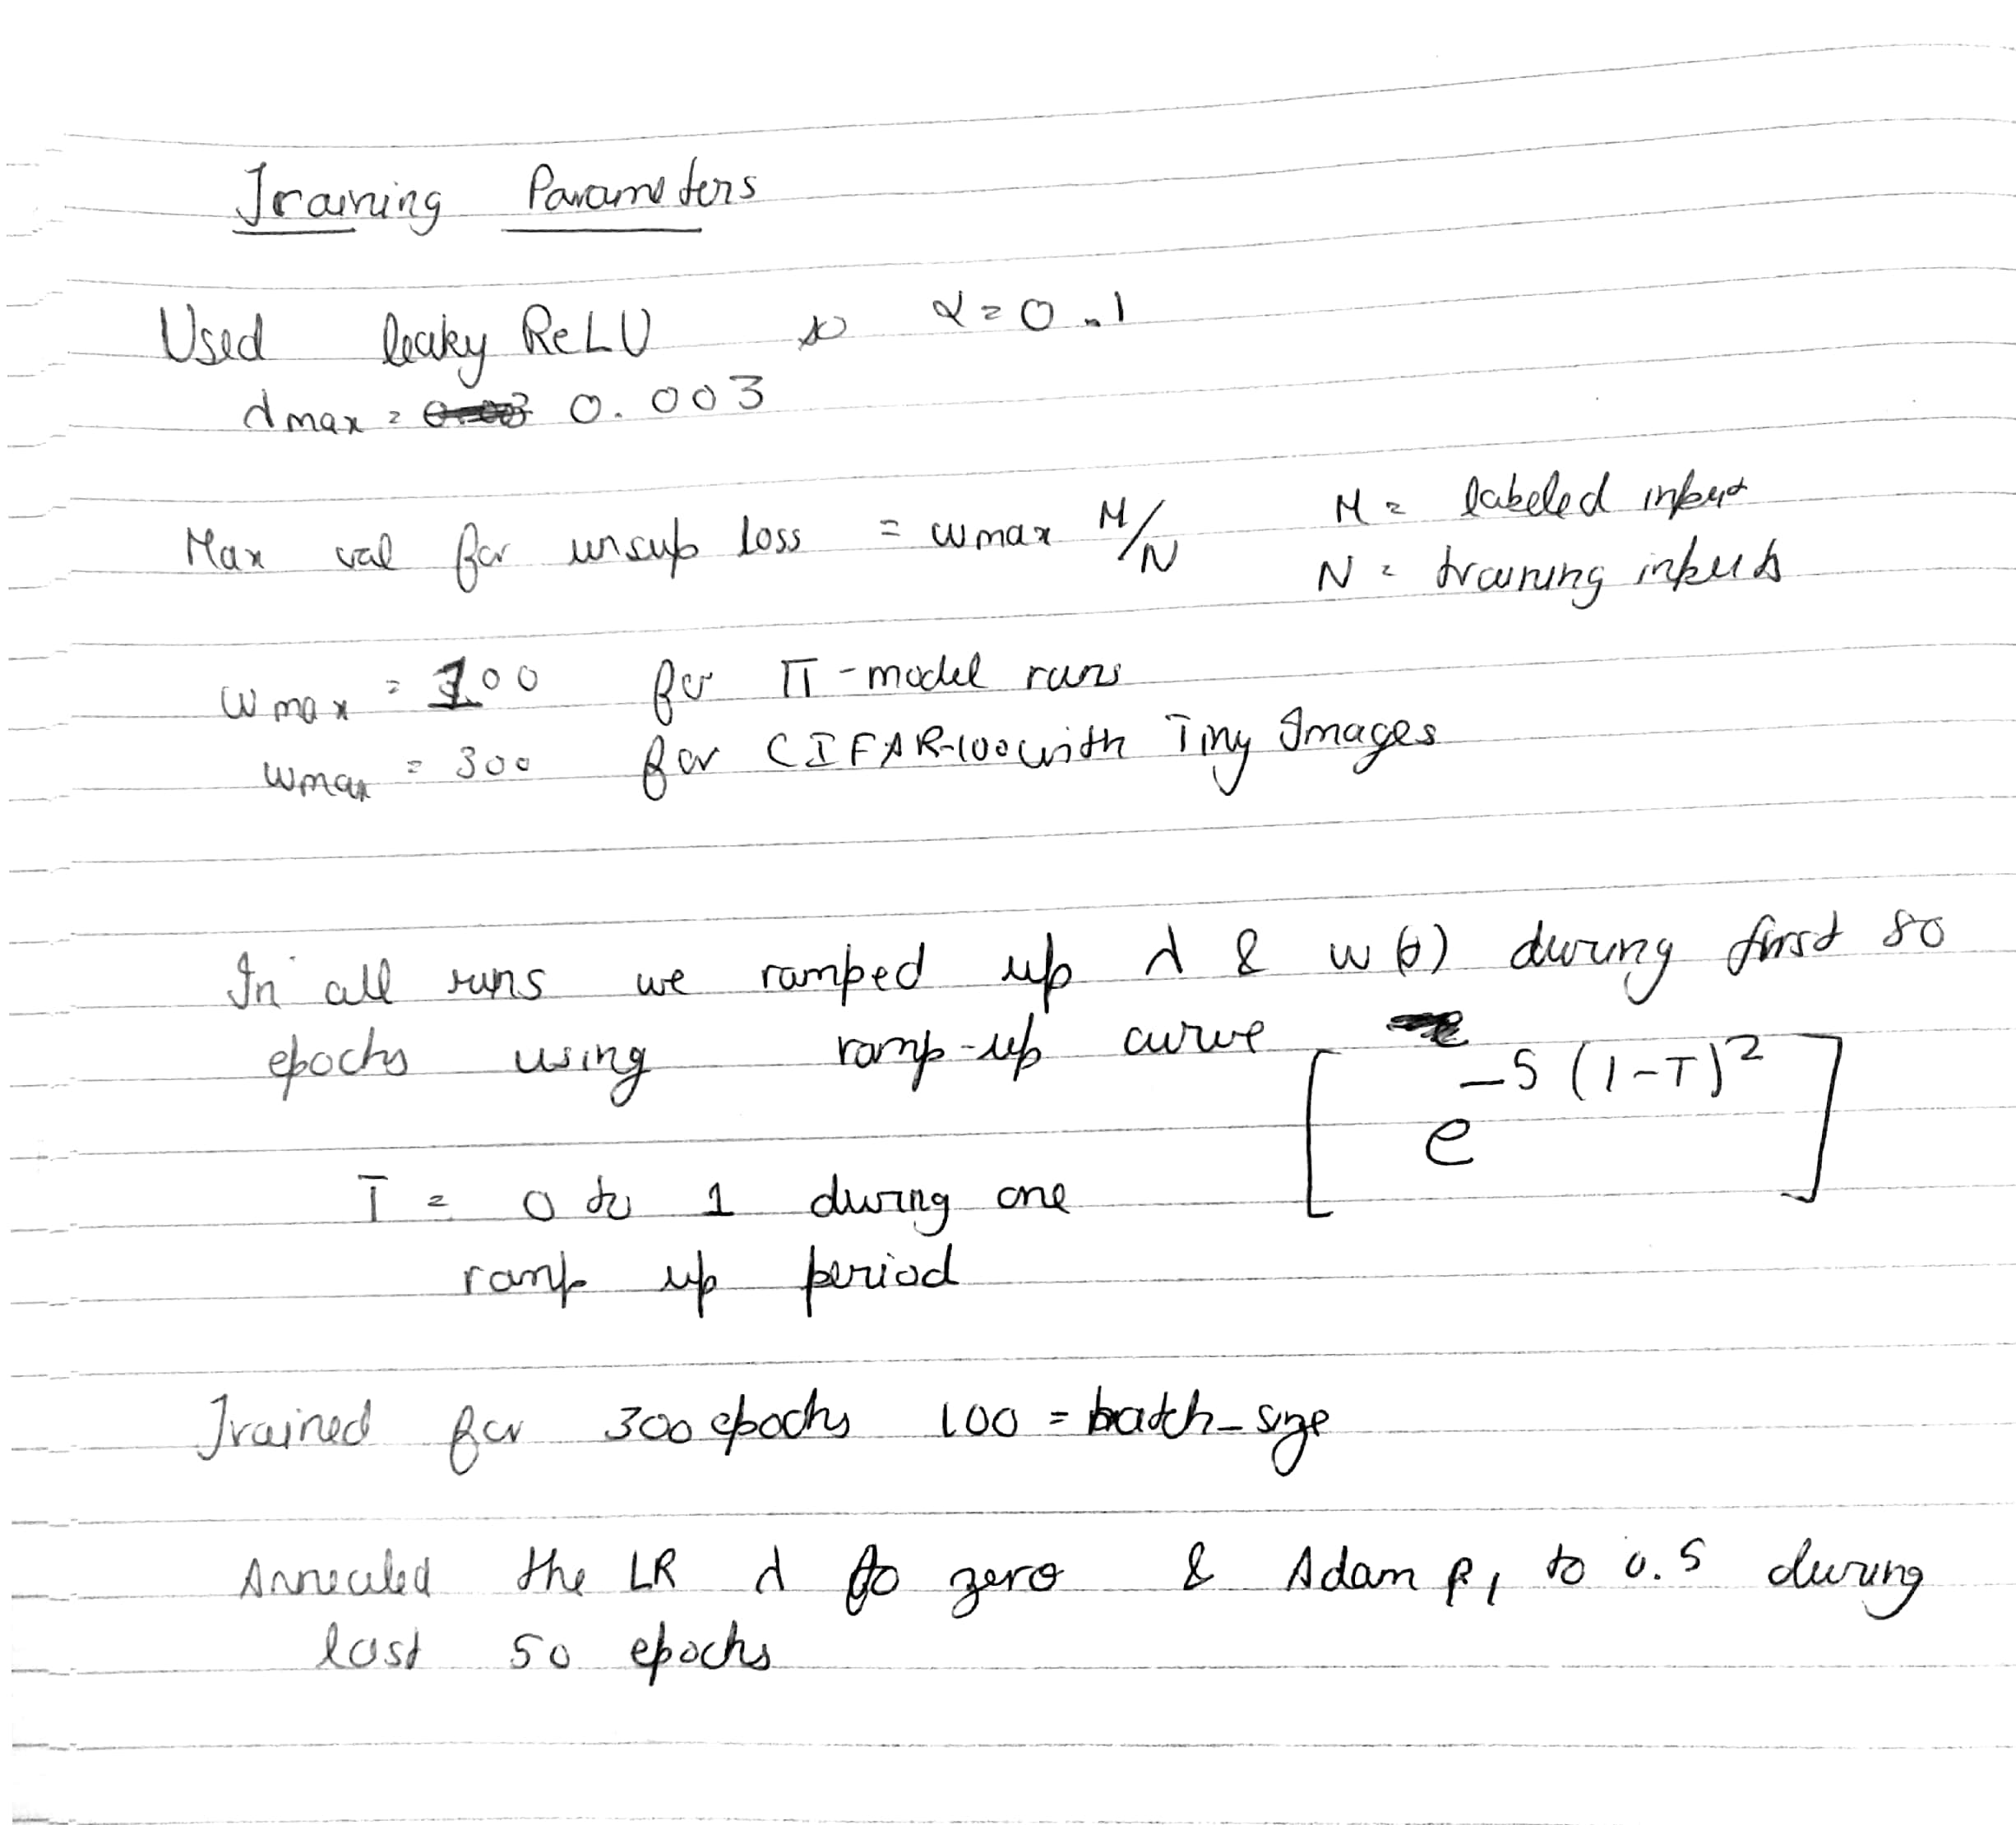 Training Parameters
Used leaky ReLU α = 0.1
λmax = 0.003
Max val for unsup loss = wmax M/N M = labeled input
N = training inputs
wmax = 100 for Π-model runs
wmax = 300 for CIFAR-100 with Tiny Images
In all runs we ramped up λ & w(t) during first 80
epochs using ramp-up curve [e^-5(1-T)^2]
T = 0 to 1 during one
ramp up period
Trained for 300 epochs 100 = batch_size
Annealed the LR λ to zero & Adam β1 to 0.5 during
last 50 epochs